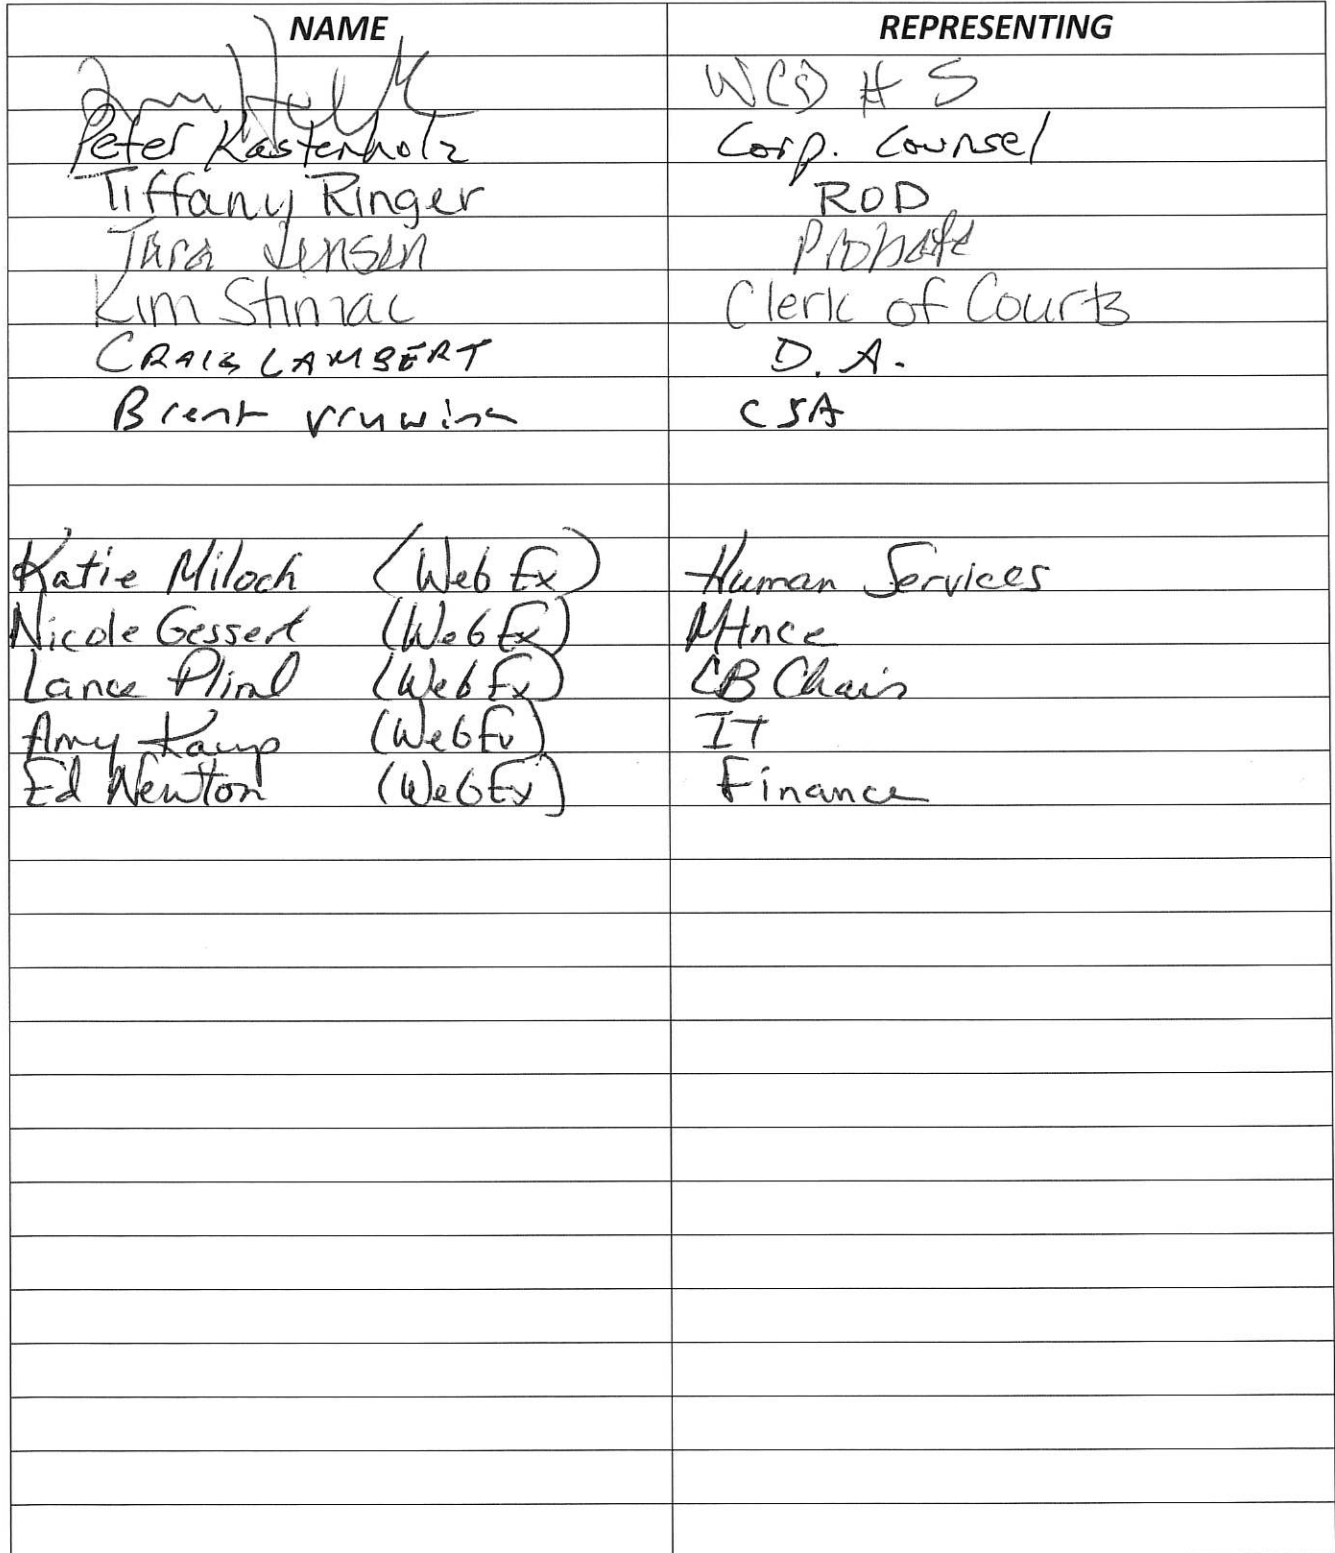 NAME REPRESENTING
# 5
Peter Kastenholz Corp. Counsel
Tiffany Ringer ROD
Tara Jensen Probate
Kim Stimac Clerk of Courts
CRAIG LAMBERT D.A.
Brent Vruwink CSA
Katie Miloch (WebEx) Human Services
Nicole Gessert (WebEx) Mtnce
Lance Pliml (WebEx) CB Chair
Amy Kaup (WebEx) IT
Ed Newton (WebEx) Finance